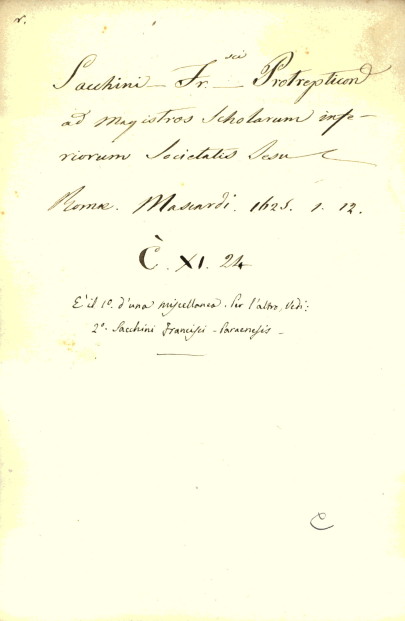 r.
Sacchini - Fr.sci - Protrepticon
ad Magistros Scholarum infe-
riorum Societatis Jesu
Romæ. Mascardi. 1625. 1. 12.
C. XI. 24
E' il 1º. d'una miscellanea. Per l'altro, vedi:
2º. Sacchini Francisci - Paraenesis -
C